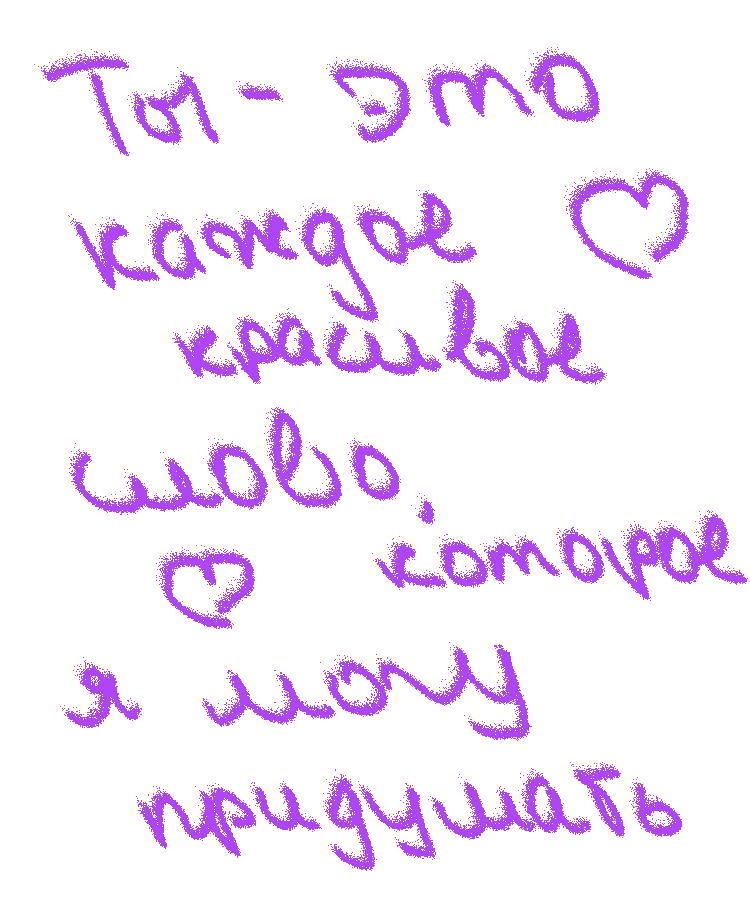 Ты - это
каждое
красивое
слово,
которое
я могу
придумать